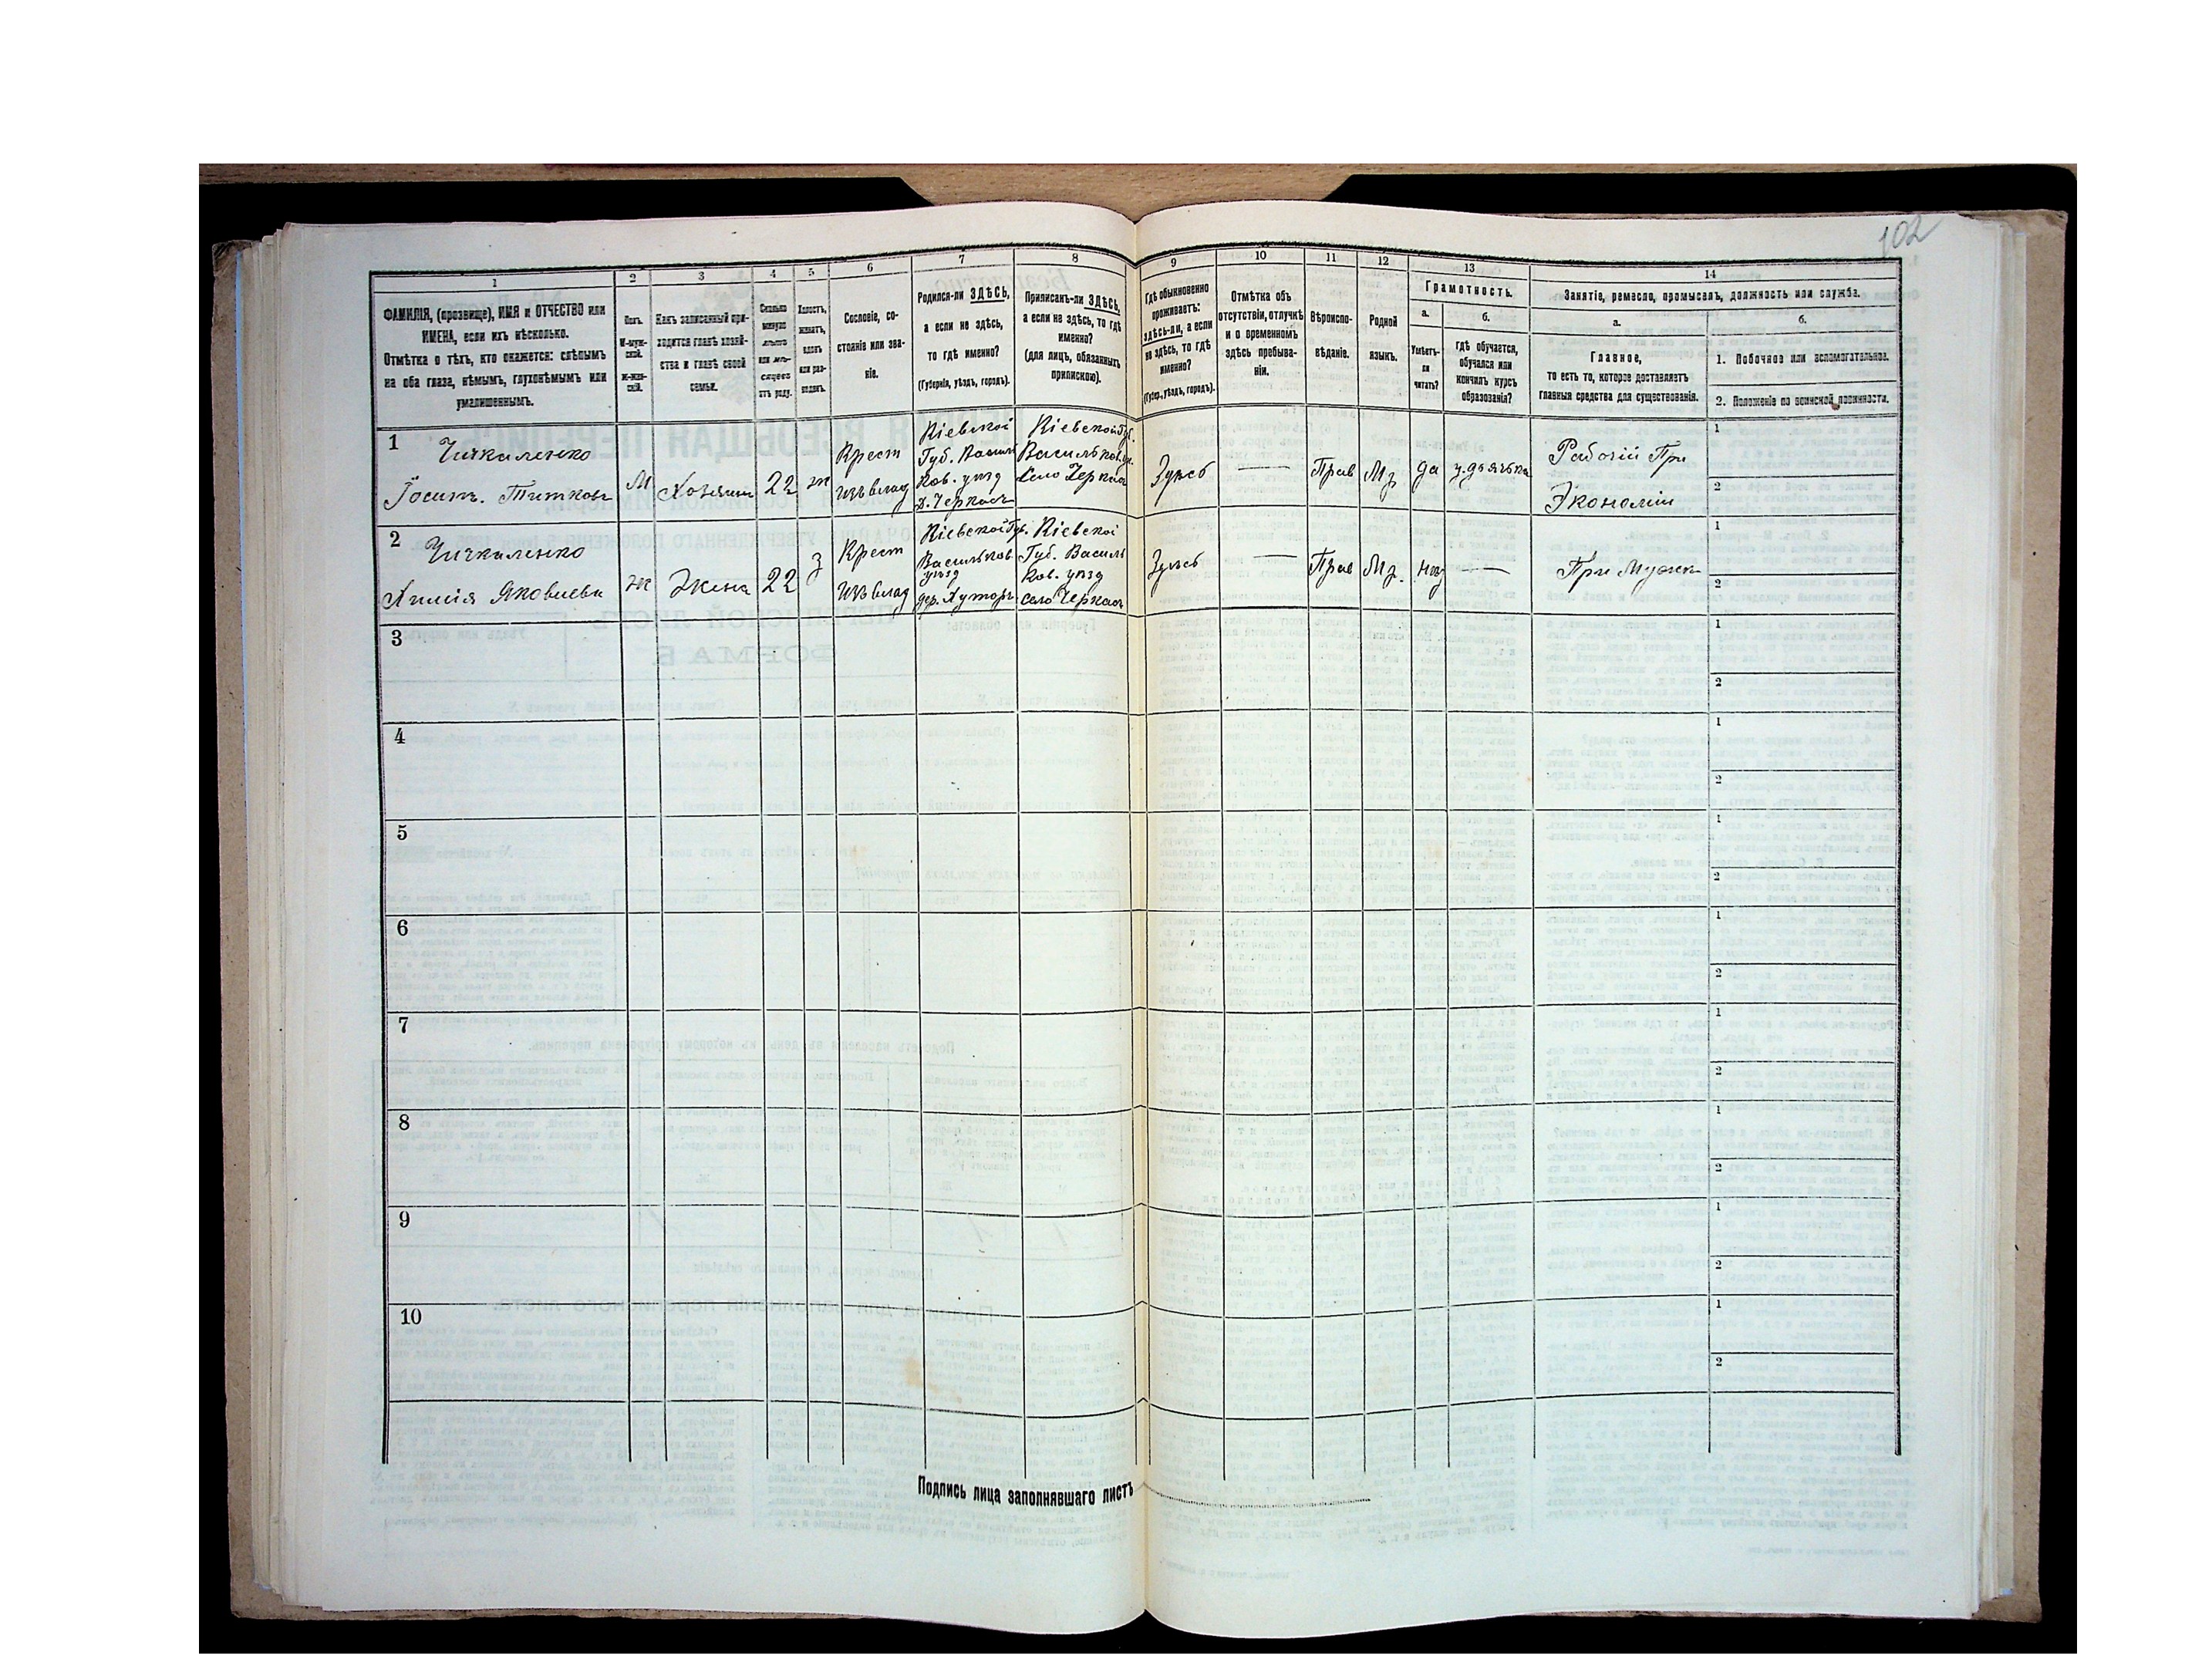 102
1
2
3
4
5
6
7
8
9
10
11
12
13
14
ФАМИЛІЯ, (прозвище), ИМЯ и ОТЧЕСТВО или
ИМЕНА, если ихъ нѣсколько.
Отмѣтка о тѣхъ, кто окажется: слѣпымъ
на оба глаза, нѣмымъ, глухонѣмымъ или
умалишеннымъ.
Полъ.
М-муж-
ской.
ж-жен-
скій.
Какъ записанный при-
ходится главѣ хозяй-
ства и главѣ своей
семьи.
Сколько
минуло
лѣтъ
или мѣ-
сяцевъ
отъ роду.
Холостъ,
женатъ,
вдовъ
или раз-
веденъ.
Сословіе, со-
стояніе или зва-
ніе.
Родился-ли ЗДѢСЬ,
а если не здѣсь,
то гдѣ именно?
(Губернія, уѣздъ, городъ).
Приписанъ-ли ЗДѢСЬ,
а если не здѣсь, то гдѣ
именно?
(для лицъ, обязанныхъ
припискою).
Гдѣ обыкновенно
проживаетъ:
здѣсь-ли, а если
не здѣсь, то гдѣ
именно?
(Губер., уѣздъ, городъ).
Отмѣтка объ
отсутствіи, отлучкѣ
и о временномъ
здѣсь пребыва-
ніи.
Вѣроиспо-
вѣданіе.
Родной
языкъ.
Грамотность.
а.
Умѣетъ-
ли
читать?
б.
гдѣ обучается,
обучался или
кончилъ курсъ
образованія?
Занятіе, ремесло, промыселъ, должность или служба.
а.
Главное,
то есть то, которое доставляетъ
главныя средства для существованія.
б.
1. Побочное или вспомогательное.
2. Положеніе по воинской повинности.
1
Чичкаленко
М
Хозяинъ
22
ж
Крест
Кіевской
Губ. Василь
ков. уѣзд
Кіевской Губ.
Васильков. у.
Село Черкасъ
Прав
Мр
да
Рабочій При
Экономіи
1
2
2
Чичкаленко
Яковлева
ж
Жена
22
з
Крест
Кіевской Губ.
Васильков
уѣзд
дер. Хуторъ
Кіевской
Губ. Василь
ков. уѣзд
село Черкасъ
Прав
Мр.
При Мужѣ
1
2
3
1
2
4
1
2
5
1
2
6
1
2
7
1
2
8
1
2
9
1
2
10
1
2
Подпись лица заполнявшаго листъ